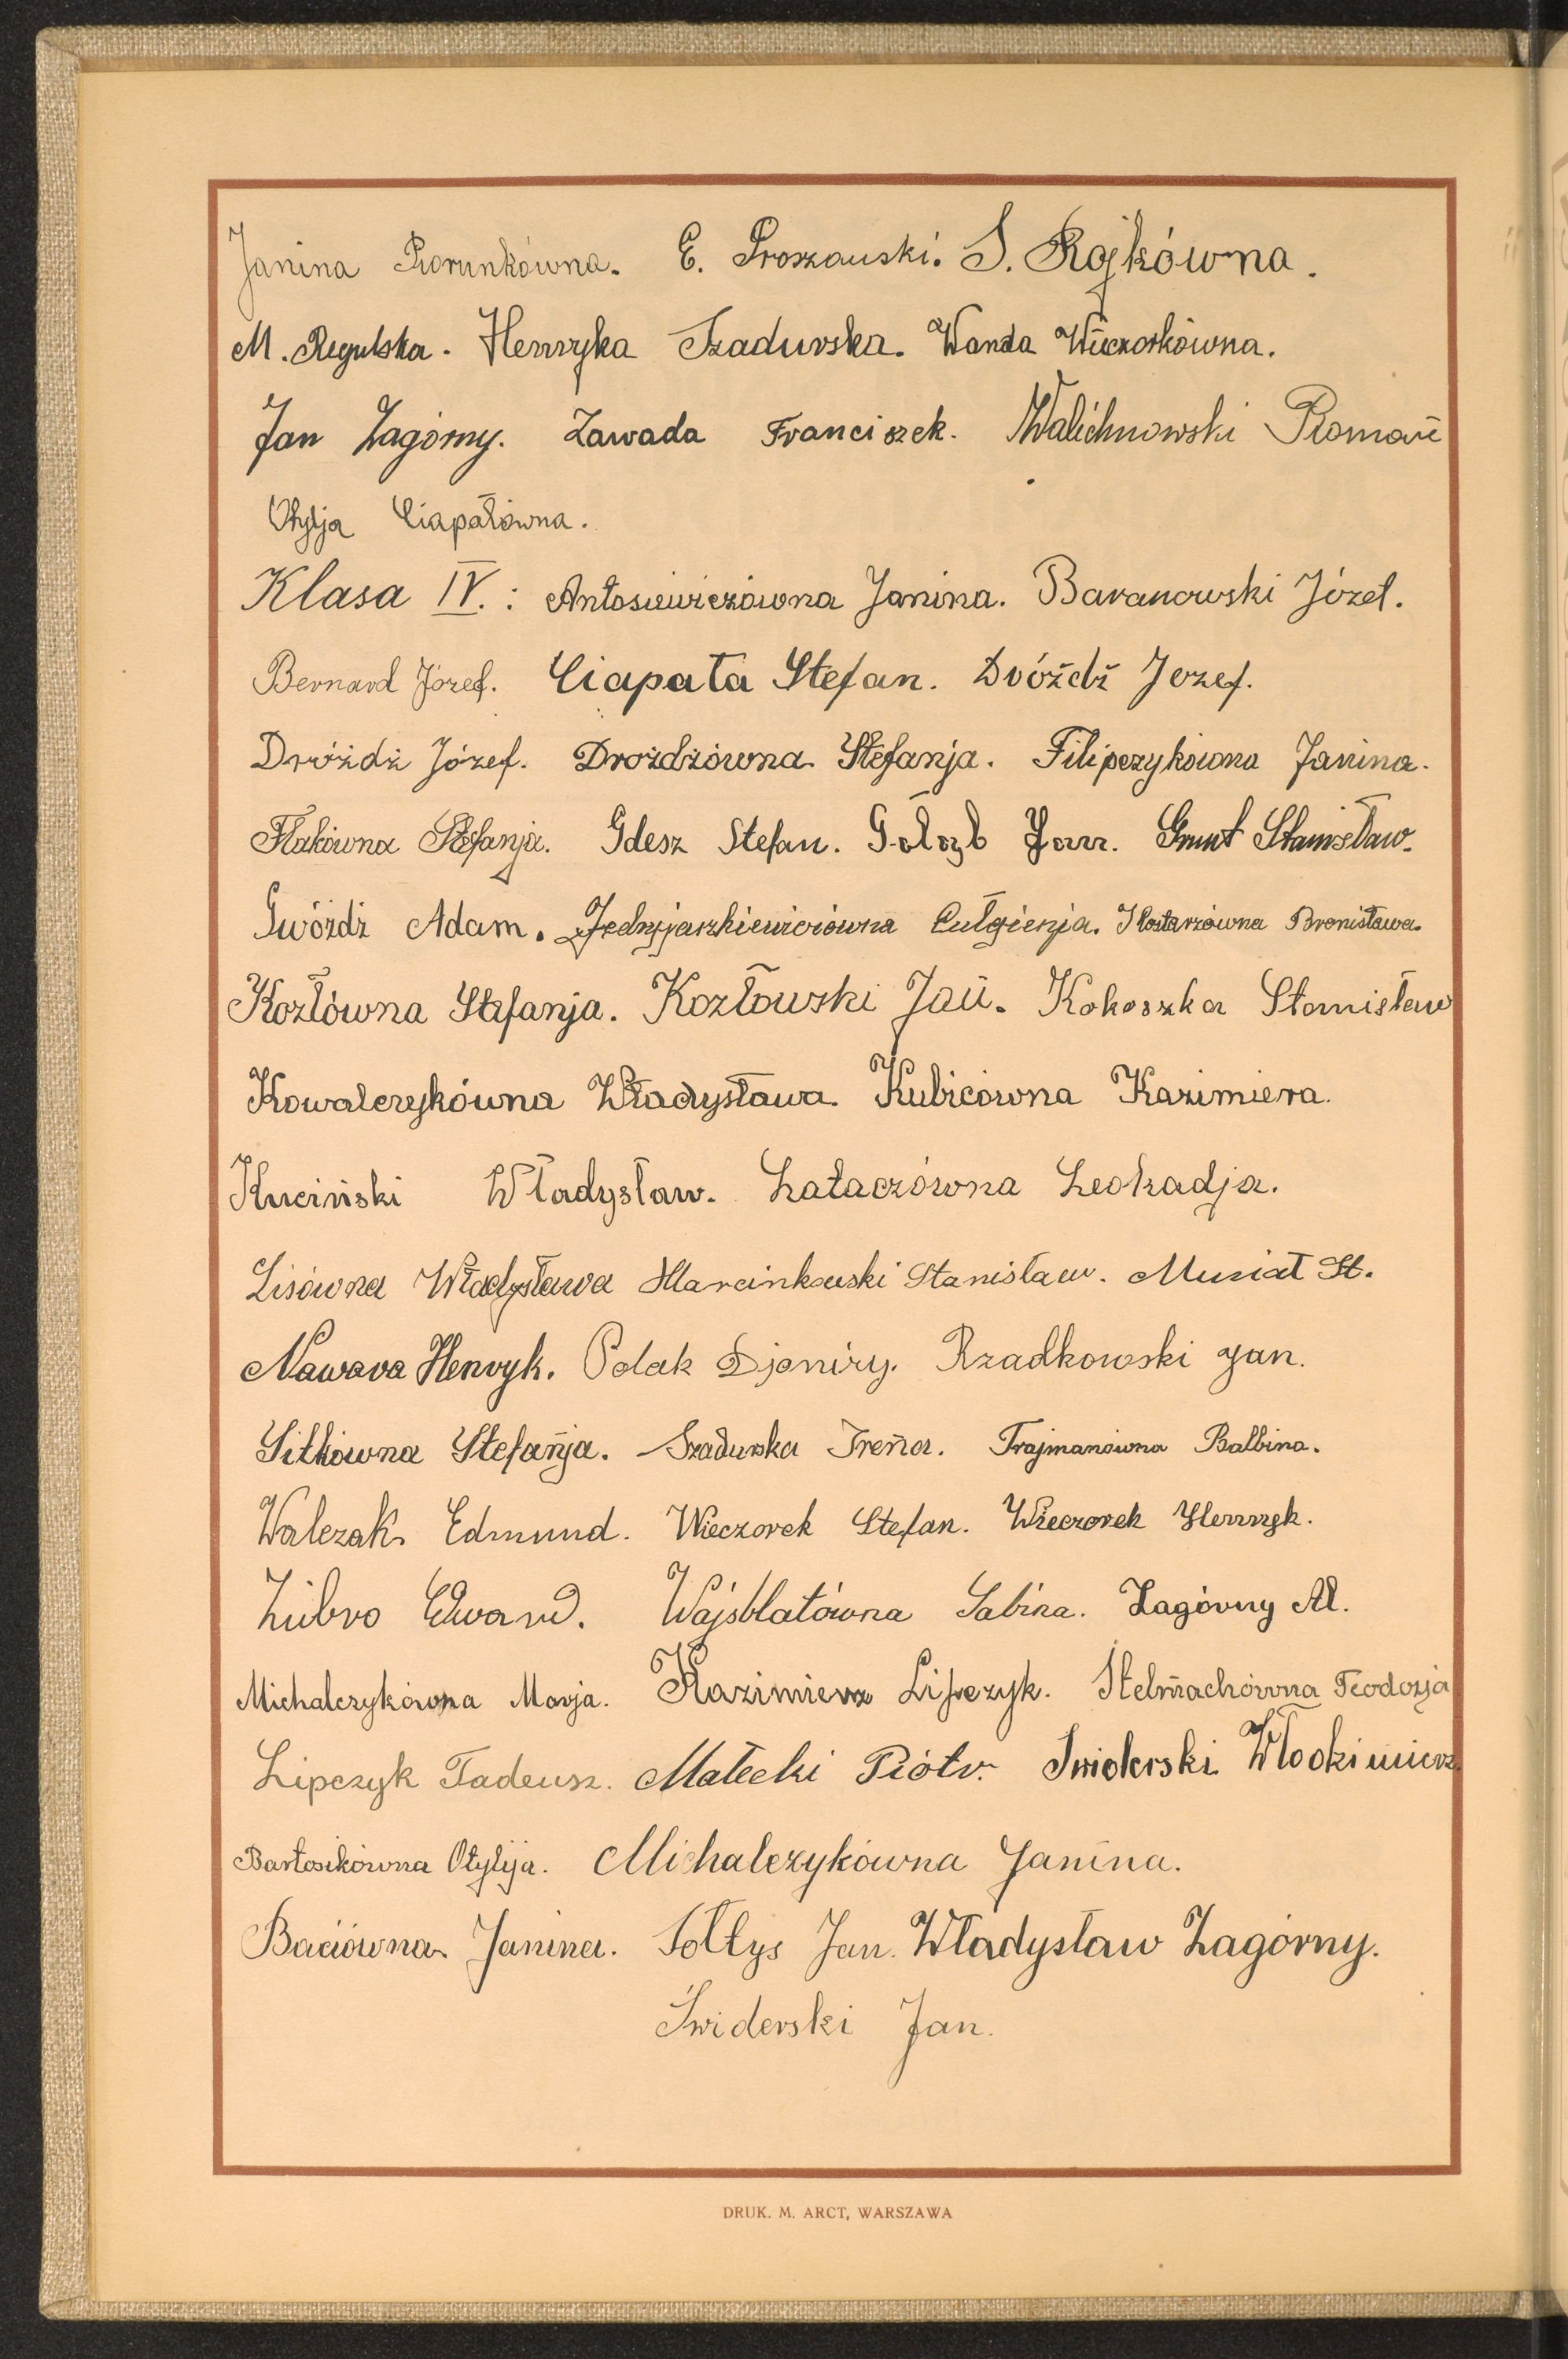 Janina Piorunkówna. E. Proszauski. S. Rojkówna.
M. Regulska. Henryka Szadurska. Wanda Wieczorkówna.
Jan Zagórny. Zawada Franciszek. Walichnowski Roman
Otylja Ciapałówna.
Klasa IV.: Antosiewiczówna Janina. Baranowski Józef.
Bernard Józef. Ciapała Stefan. Dróźdź Jozef.
Dróżdż Józef. Drożdżówna Stefanja. Filipczykówna Janina.
Flakówna Stefanja. Gdesz Stefan. Gołąb Jan. Grunt Stanisław.
Gwóżdż Adam. Jedryjaszkiewiczówna Eułgienja. Kostarzówna Bronisława.
Kozłówna Stefanja. Kozłowski Jan. Kokoszka Stanisław
Kowalczykówna Władysława. Kubicówna Kazimiera.
Kuciński Władysław. Łataczówna Leokadja.
Lisówna Władysława Marcinkowski Stanisław. Musiał St.
Nawara Henryk. Polak Djonizy. Rzadkowski Jan.
Sitkówna Stefanja. Szadurska Irena. Trajmanówna Balbina.
Walczak Edmund. Wieczorek Stefan. Wieczorek Henryk.
Ziibro Edward. Wajsblatówna Sabina. Zagórny Al.
Michalczykówna Marja. Kazimierz Lipczyk. Stelmachówna Teodozja
Lipczyk Tadeusz. Małecki Piótr. Swiderski Włodzimierz.
Bartosikówna Otylja. Michalczykówna Janina.
Baciówna Janina. Sołtys Jan. Władysław Zagórny.
Świderski Jan.
DRUK. M. ARCT, WARSZAWA